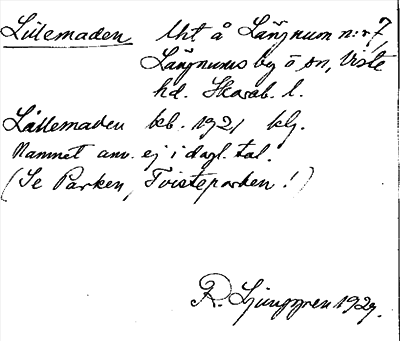 Lillemaden Uht å Längnum n:r 7,
Längnums by o sn, Viste
hd. Skarab. l.
Låttemaden kb. 1921 klj.
Namnet anv. ej i dagl. tal.
(Se Parken, Tvisteparken!)
R. Ljunggren 1929.